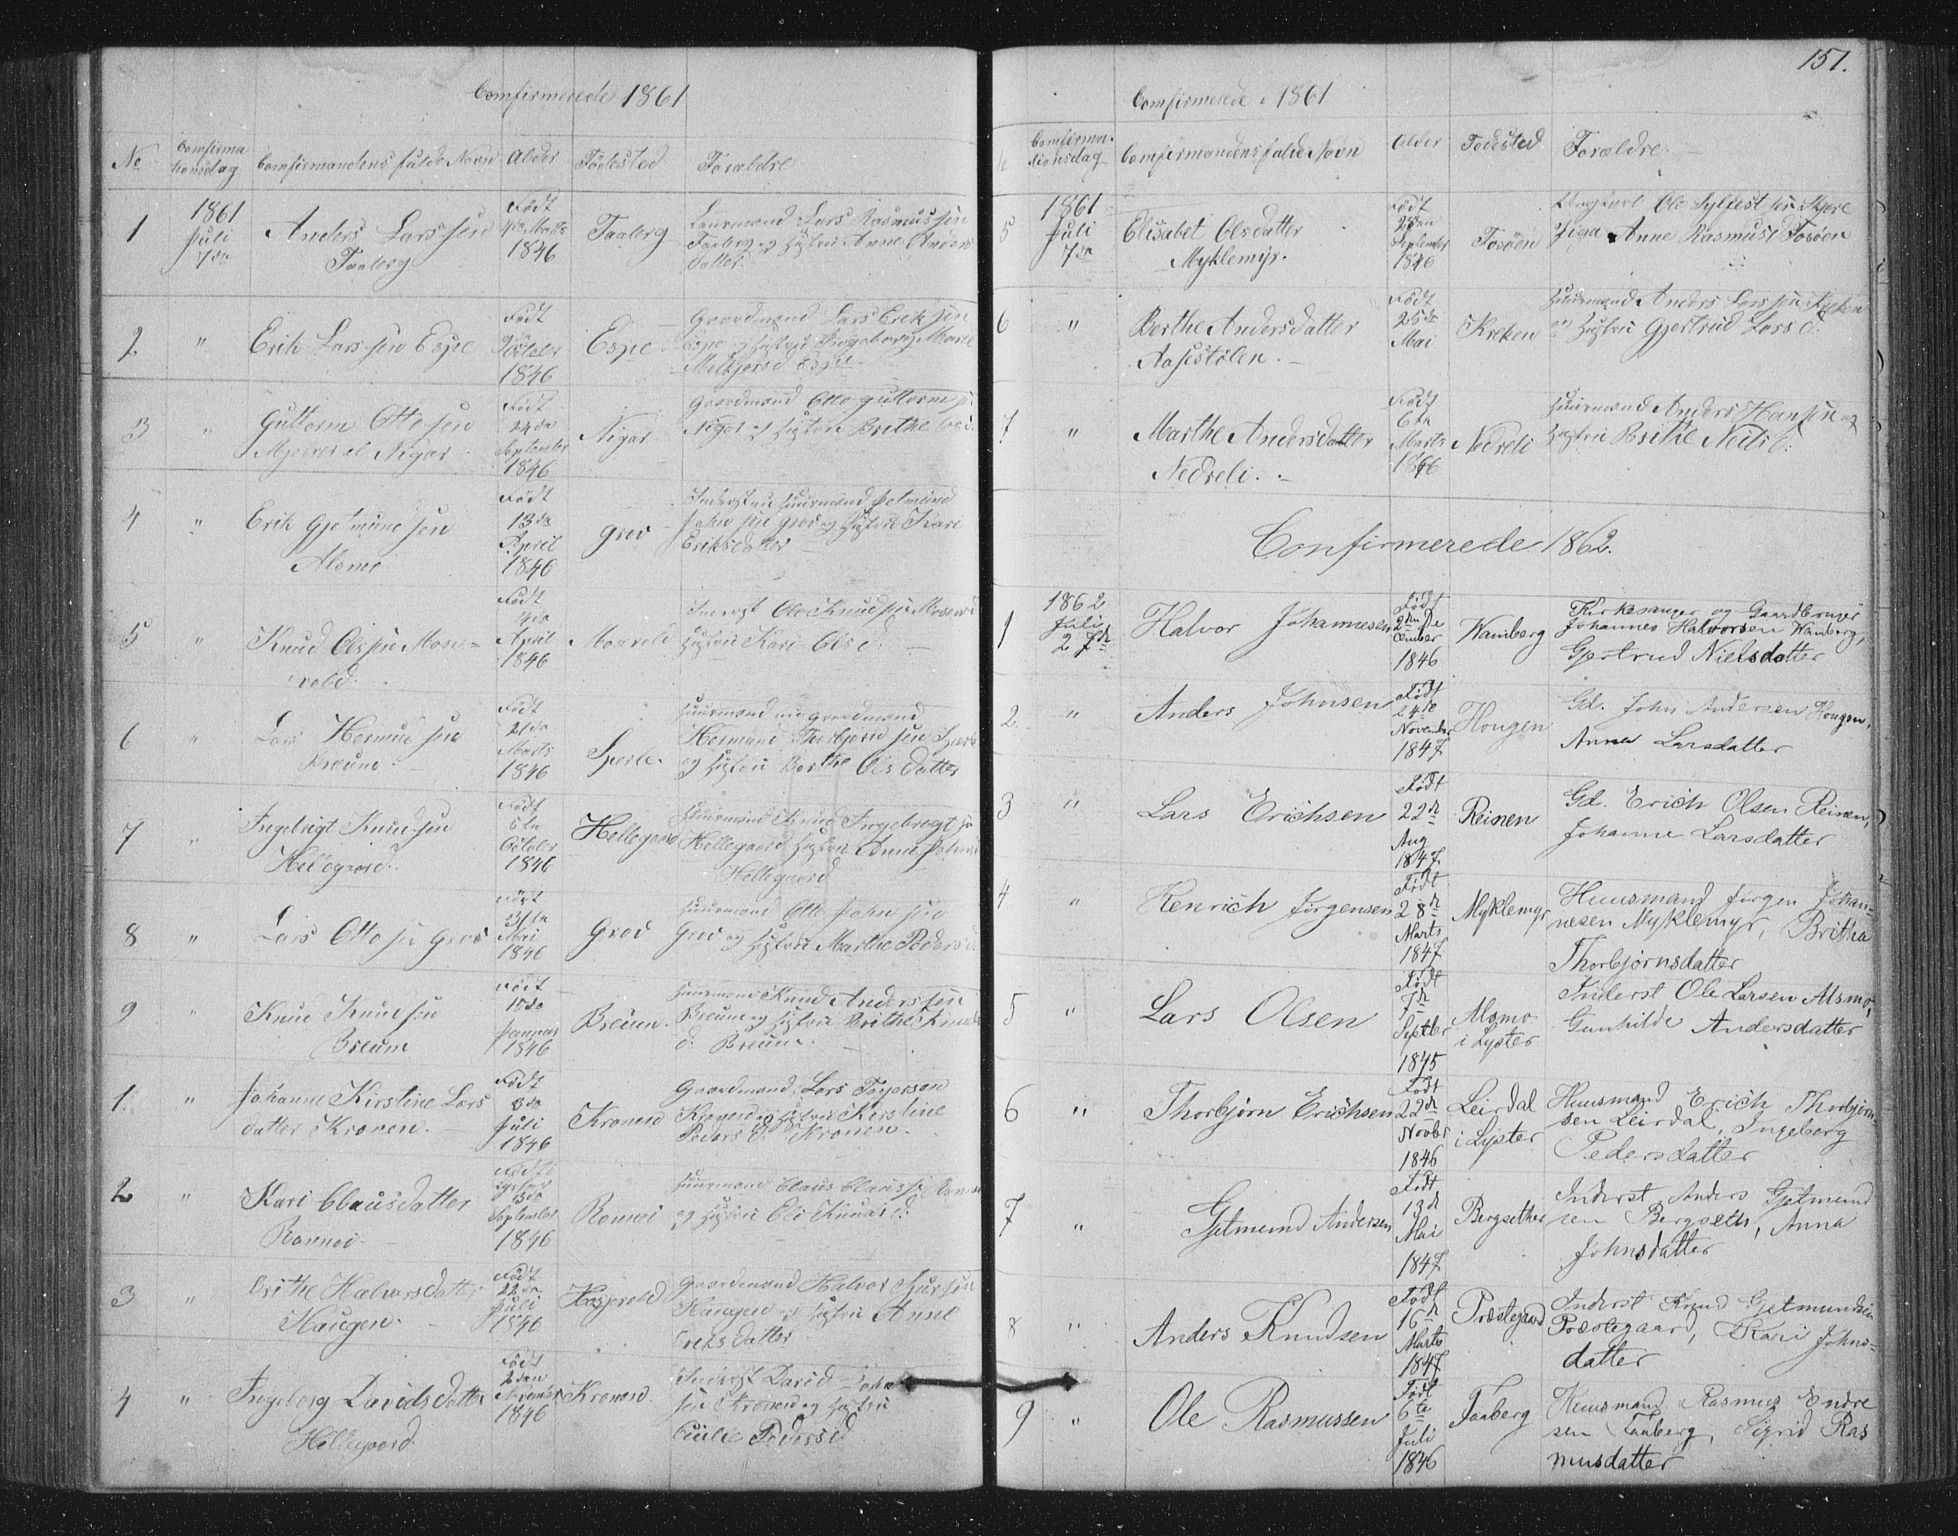 Comfirmerede 1861
No
Comfirma
tionsdag
Comfirmandens fulde Navn
Alder
Fødested
Forældre
1
1861
Juli
7de
Anders Larssen
Faaberg
Født
Marts
1846
Faaberg
Lars Rasmussen
Faaberg og Hustru Anne Anders
datter
2
"
Erik Larssen Espe
Født
October
1846
Espe
Gaardmand Lars Eriksen
Espe og Hustru Ingeborg Marie
Espe
3
"
Guttorm Ottosen
Nigar
Født
24de
September
1846
Nigar
Gaardmand Otto Guttorm
Nigar og Hustru Brithe
4
"
Erik Gjetmundsen
Alsmo
Født
13de
April
1846
Grov
Huusmand Gjetmund
Johnsen Grov og Hustru Kari
Eriksdatter
5
"
Knud Olssen Mose=
vold
Født
April
1846
Mosevold
Inderst Ole Knudsen Mosevold
Hustru Kari Olsd.
6
"
Lars Hermundsen
Kroune
Født
21de
Marts
1846
Sperle
Huusmand nu Gaardmand
Hermund Thorbjørnsen Sperle
og Hustru Berthe Olsdatter
7
"
Ingebrigt Knudsen
Hellegaard
Født
5te
October
1846
Hellegaard
Huusmand Knud Ingebrigt
Hellegaard Hustru Anne
Hellegaard
8
"
Lars Ottosen Grov
Født
31te
Mai
1846
Grov
Huusmand Otto Johnsen
Grov og Hustru Marthe Pedersd
9
"
Knud Knudsen
Breum
Født
15de
Januar
1846
Breum
Huusmand Knud Anderssen
Breum og Hustru Brithe Knuds
d. Breum
1.
"
Johanne Kirstine Lars
datter Kronen
Født
8de
Juli
1846
Kronen
Gaardmand Lars
Kronen og Hustru Kirstine
Peders d. Kronen
2
"
Kari Clausdatter
Ronnei
Født
Lyster
September
1846
Ronnei
Huusmand Claus Claussen
og Hustru Eli Knudsd.
3
"
Brithe Halvorsdatter
Haugen
Født
22de
Juli
1846
Gaardmand Halvor
Haugen og Hustru Anne
Eriksdatter
4
"
Ingeborg Davidsdatter
Hellegaard
Født
2den
November
1846
Kronen
Inderst David John
sen Kronen og Hustru
Cicilie Pedersd
151.
Comfirmerede 1861
Comfirma-
tionsdag
Comfirmandens fulde Navn
Alder
Fødested
Forældre
5
1861
Juli
7de
Elisabet Olsdatter
Myklemyr.
Født
28den
September
1846
Fosøen
Ungkarl Ole Sylfestsen
Piga Anne Rasmusd Fosøen
6
"
Berthe Andersdatter
Aasestølen.
Født
25de
Mai
Kreken
Huusmand Anders Larssen Kreken
og Hustru Gjertrud Larsd.
7
"
Marthe Andersdatter
Nedreli.
Født
6te
Marts
1846
Nedreli
Huusmand Anders Hansen og
Hustru Brithe Neilsd.
Confirmerede 1862.
1
1862
Juli
27de
Halvor Johannesen
Født
2den De
cember
1846
Wamberg
Kirkesanger og Gaardbruger
Johannes Halvorsen Wamberg,
Gjertrud Nielsdatter
2.
"
Anders Johnsen
Født
24de
November
1847
Hougen
Gd. John Andersen Hougen,
Anna Larsdatter
3
"
Lars Erichsen
Født
22de
Aug
1847
Reinen
Gd. Erich Olsen Reinen,
Johanne Larsdatter
4
"
Henrich Jørgensen
Født
28de
Marts
1847
Myklemyr
Huusmand Jørgen Johan=
nesen Myklemyr, Britha
Thorbjørnsdatter
5
"
Lars Olsen
Født
7de
Septber
1845
Alsmo
i Lyster
Inderst Ole Larsen Alsmo,
Gunhilde Andersdatter
6
"
Thorbjørn Erichsen
Født
22de
Novbr
1846
Leirdal
i Lyster
Huusmand Erich Thorbjørn
sen Leirdal, Ingeborg
Pedersdatter
7
"
Gjetmund Andersen
Født
13de
Mai
1847
Bergsether
Inderst Anders Gjetmund
sen Bergseth, Anna
Johnsdatter
8
"
Anders Knudsen
Født
16de
Marts
1847
Præstegaard
Inderst Knud Gjetmundsen
Præstegaard, Kari Johns=
datter
9
"
Ole Rasmussen
Født
6te
Juli
1846
Faaberg
Huusmand Rasmus Endre
sen Faaberg, Sigrid Ras
musdatter